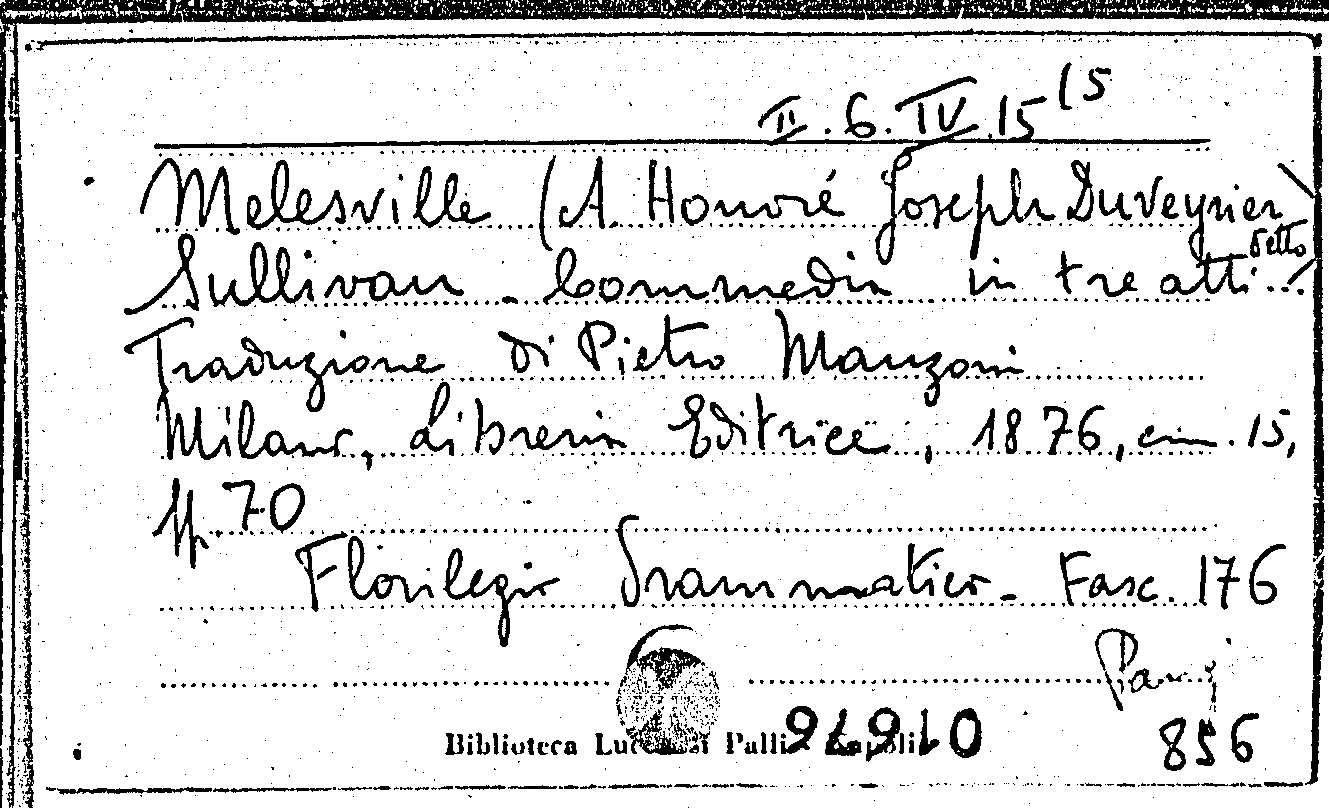 II.6.IV.15(5
Melesville (A. Honoré Joseph Duveyrier
detto
Sullivan - Commedia in tre atti...
Traduzione di Pietro Manzoni
Milano, Libreria Editrice, 1876, cm. 15,
pp. 70
Florilegio Drammatico - Fasc. 176
856
Biblioteca Lucchesi Palli Napoli